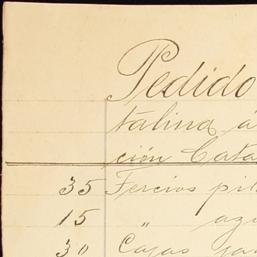 Pedido
talina á
ción Cata
35 Tercios pil
15 " azu
30 Cajas ja